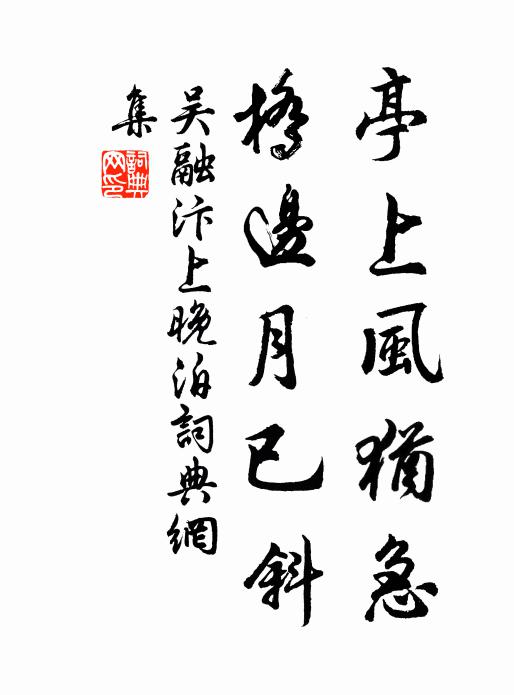 亭上風猶急
橋邊月已斜
吳融汴上晚泊詞典網
集
詞典
网印